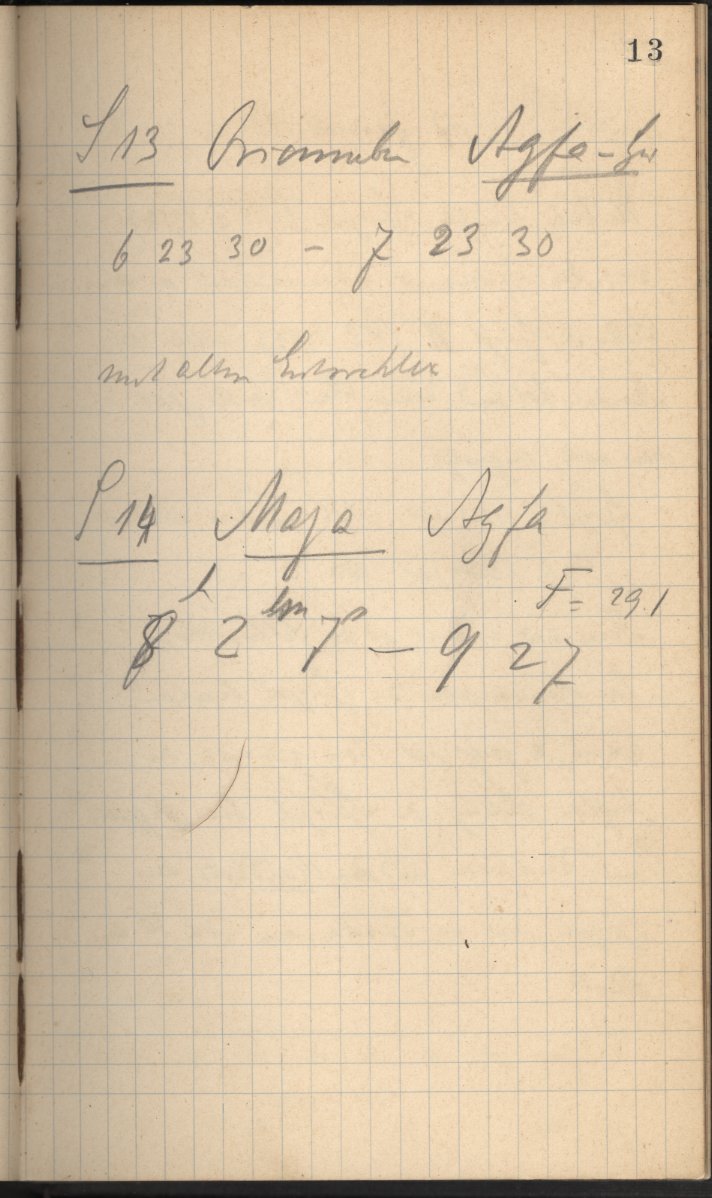 13
S 13 Orionnebel Agfa-
6 23 30 – 7 23 30
mit altem Entwickler
S 14 Maja Agfa
F = 29.1
8h 2m 7s – 9 2 7